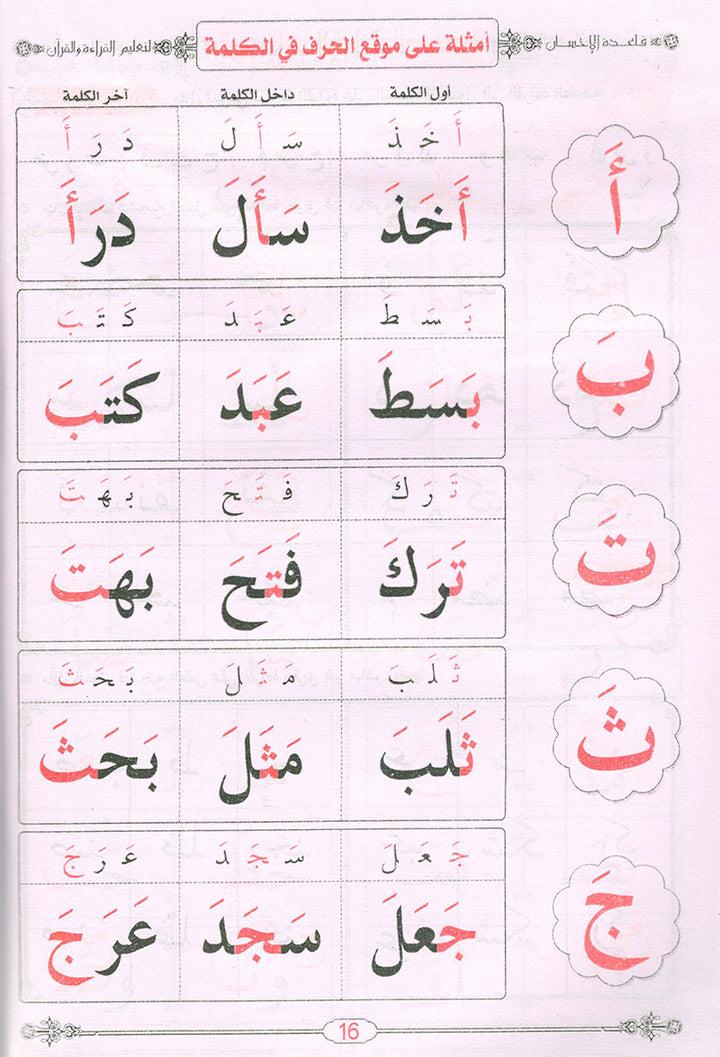 قاعدة الإحسان أمثلة على موقع الحرف في الكلمة لتعليم القراءة والقرآن
أول الكلمة داخل الكلمة آخر الكلمة
أَ
أَ خَ ذَ سَـ أَ لَ دَ رَ أَ
أَخَذَ سَأَلَ دَرَأَ
بَ
بَـ سَـ طَ عَـ بَـ دَ كَـ تَـ بَ
بَسَطَ عَبَدَ كَتَبَ
تَ
تَـ رَ كَ فَـ تَـ حَ بَـ هَـ تَ
تَرَكَ فَتَحَ بَهَتَ
ثَ
ثَـ لَـ بَ مَـ ثَـ لَ بَـ حَـ ثَ
ثَلَبَ مَثَلَ بَحَثَ
جَ
جَـ عَـ لَ سَـ جَـ دَ عَـ رَ جَ
جَعَلَ سَجَدَ عَرَجَ
16